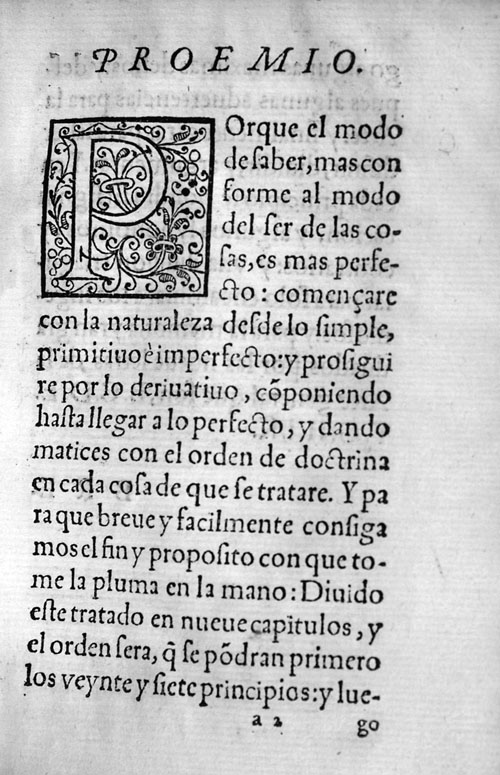 PROEMIO.
POrque el modo
de saber, mas con
forme al modo
del ser de las co-
sas, es mas perfe-
cto: començare
con la naturaleza desde lo simple,
primitiuo è imperfecto: y prosigui
re por lo deriuatiuo, cõponiendo
hasta llegar a lo perfecto, y dando
matices con el orden de doctrina
en cada cosa de que se tratare. Y pa
ra que breue y facilmente consiga
mos el fin y proposito con que to-
me la pluma en la mano: Diuido
este tratado en nueue capitulos, y
el orden sera, q̃ se põdran primero
los veynte y siete principios: y lue-
a 2 go